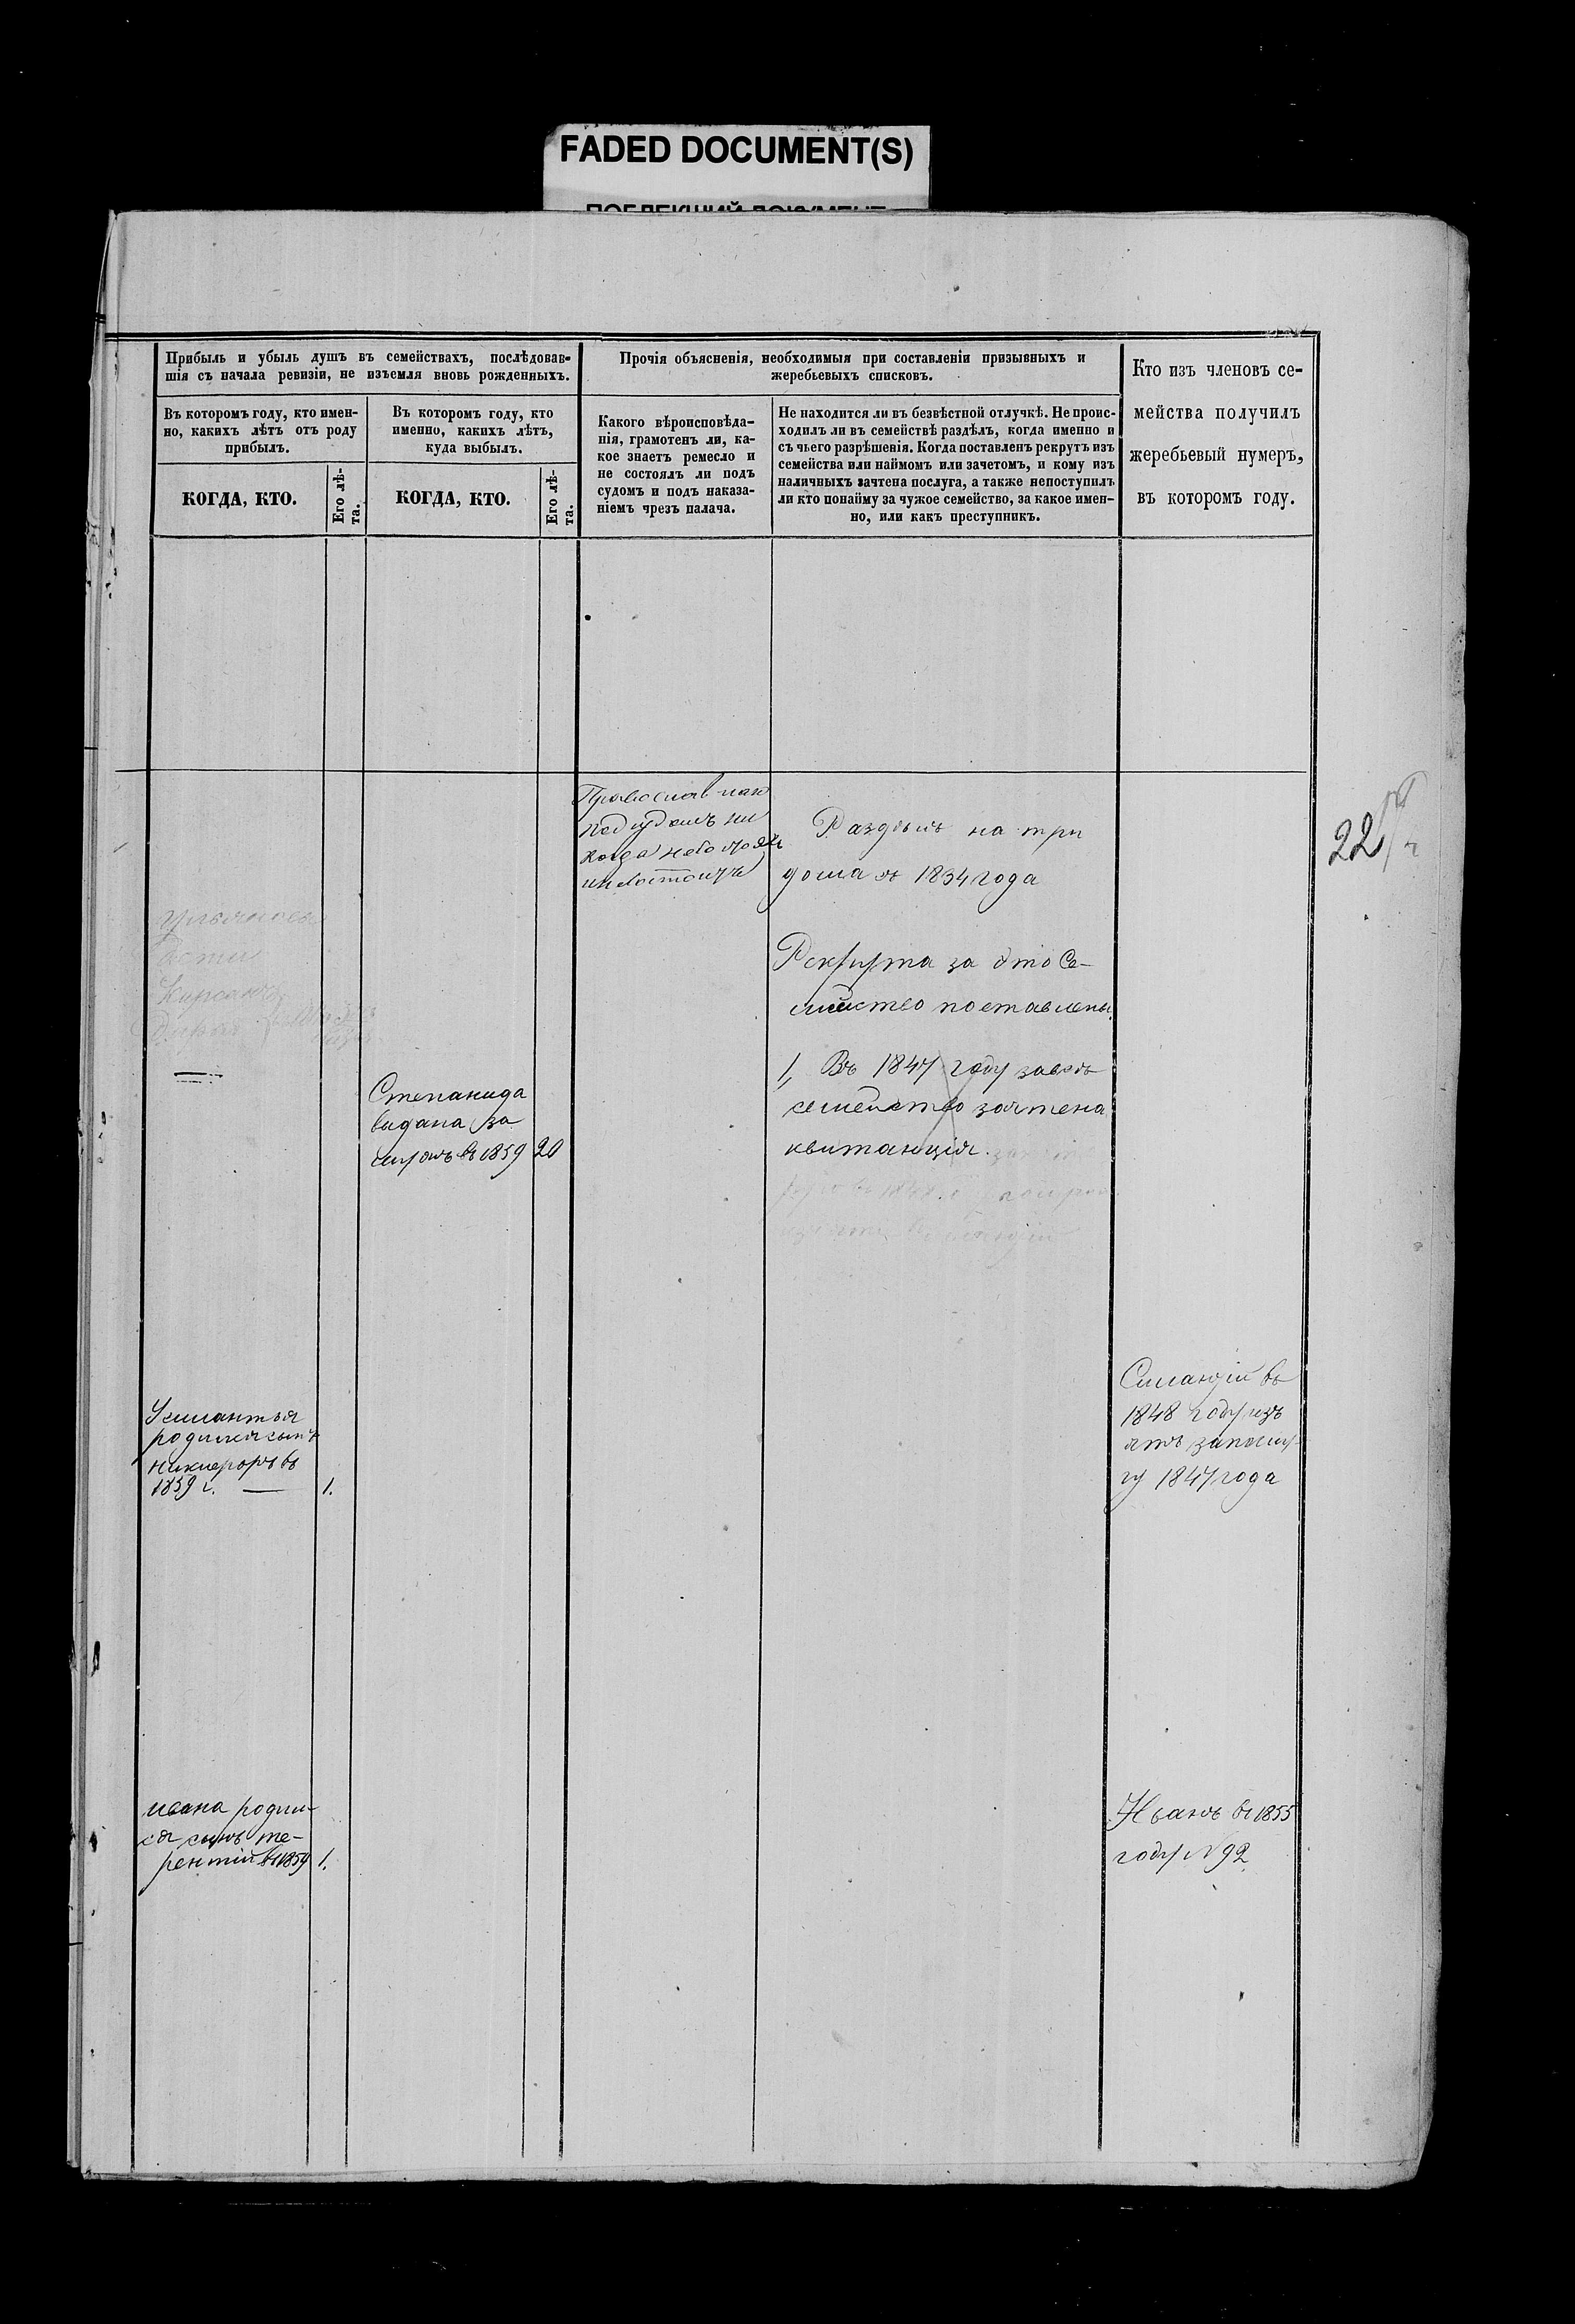 FADED DOCUMENT(S)
Прибыль и убыль душъ въ семействахъ, послѣдовав-
шія съ начала ревизіи, не изъемля вновь рожденныхъ.
Въ которомъ году, кто имен-
но, какихъ лѣтъ отъ роду
прибылъ.
КОГДА, КТО.
Его лѣ-
та.
Въ которомъ году, кто
именно, какихъ лѣтъ,
куда выбылъ.
КОГДА, КТО.
Его лѣ-
та.
Прочія объясненія, необходимыя при составленіи призывныхъ и
жеребьевыхъ списковъ.
Какого вѣроисповѣда-
нія, грамотенъ ли, ка-
кое знаетъ ремесло и
не состоялъ ли подъ
судомъ и подъ наказа-
ніемъ чрезъ палача.
Не находится ли въ безвѣстной отлучкѣ. Не проис-
ходилъ ли въ семействѣ раздѣлъ, когда именно и
съ чьего разрѣшенія. Когда поставленъ рекрутъ изъ
семейства или наймомъ или зачетомъ, и кому изъ
наличныхъ зачтена послуга, а также непоступилъ
ли кто понайму за чужое семейство, за какое имен-
но, или какъ преступникъ.
Кто изъ членовъ се-
мейства получилъ
жеребьевый нумеръ,
въ которомъ году.
подсудомъ ни
когда
Раздѣлъ на три
дома 1834 года
22
Рекрута за это Се-
мейство поставлены.
1, Въ 1847 году
семейство зачтена
квитанція.
Степанида
видана за
въ 1859 20
въ
1848 году изъ
ятъ запослу-
гу 1847 года
родился сынъ
въ
1859 г. — 1.
ивана родил-
ся сынъ те-
рентій въ 1859 1.
Иванъ въ 1855
году N 92